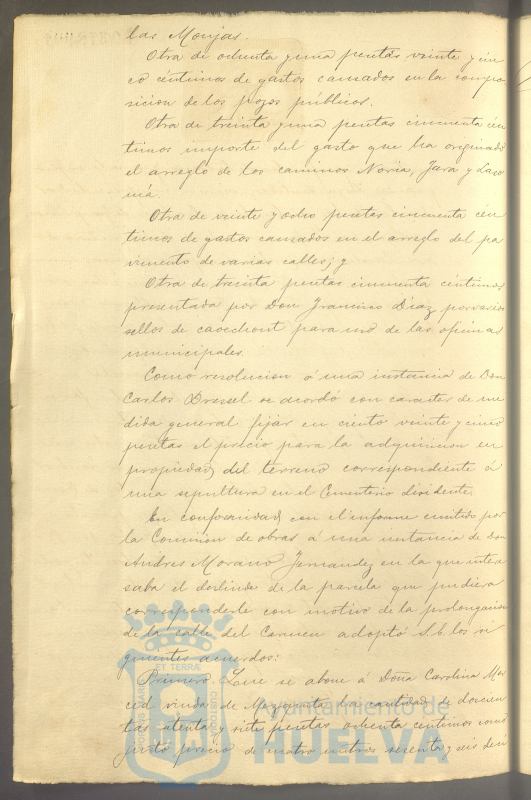 las Monjas.
Otra de ochenta y una pesetas veinte y cin
co céntimos de gastos causados en la compo
sicion de los pozos públicos.
Otra de treinta y una pesetas cincuenta cén
timos importe del gasto que ha originado
el arreglo de los caminos Noria, Jara y
Otra de veinte y ocho pesetas cincuenta cén
timos de gastos causados en el arreglo del pa
vimento de varias calles; y
Otra de treinta pesetas cincuenta céntimos
presentada por Don Francisco Diaz por varios
sellos de caoutchout para uso de las oficinas
municipales.
Como resolucion á una instancia de Don
Carlos se acordó con caracter de me
dida general fijar en ciento veinte y cinco
pesetas el precio para la adquisicion en
propiedad del terreno correspondiente á
una sepultura en el Cementerio disidente.
En conformidad con el informe emitido por
la Comision de obras á una instancia de Don
Andres Morano Fernandez en la que intere
saba el deslinde de la parcela que pudiera
corresponderle con motivo de la prolongacion
de la calle del Carmen adoptó S.E. los si
guientes acuerdos:
Primero. Que se abone á Doña Carolina
viuda de la cantidad de doscien
tas setenta y siete pesetas ochenta centimos como
justo precio de cuatro metros sesenta y seis deci
ET TERRÆ
Ayuntamiento de
HUELVA